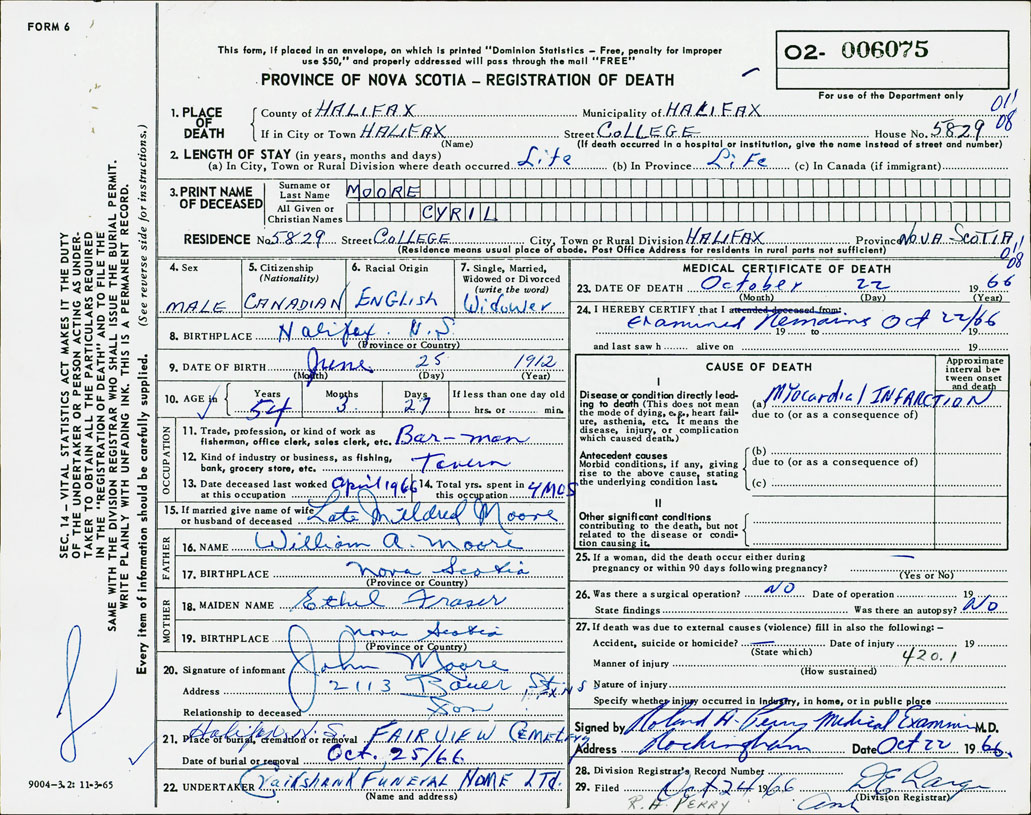 FORM 6
This form, if placed in an envelope, on which is printed "Dominion Statistics – Free, penalty for improper
use $50," and properly addressed will pass through the mail "FREE"
PROVINCE OF NOVA SCOTIA – REGISTRATION OF DEATH
O2- 006075
For use of the Department only
1. PLACE OF DEATH
County of HALIFAX Municipality of HALIFAX 011
If in City or Town HALIFAX Street COLLEGE House No. 5829 08
(Name) (If death occurred in a hospital or institution, give the name instead of street and number)
2. LENGTH OF STAY (in years, months and days)
(a) In City, Town or Rural Division where death occurred Life (b) In Province Life (c) In Canada (if immigrant)
3. PRINT NAME OF DECEASED
Surname or Last Name MOORE
All Given or Christian Names CYRIL
RESIDENCE No. 5829 Street COLLEGE City, Town or Rural Division HALIFAX Province NOVA SCOTIA 011
(Residence means usual place of abode. Post Office Address for residents in rural parts not sufficient) 08
4. Sex
MALE
5. Citizenship
(Nationality)
CANADIAN
6. Racial Origin
ENGLISH
7. Single, Married,
Widowed or Divorced
(write the word)
Widower
8. BIRTHPLACE Halifax N.S
(Province or Country)
9. DATE OF BIRTH June 25 1912
(Month) (Day) (Year)
10. AGE in
Years Months Days If less than one day old
54 3 27 hrs. or min.
OCCUPATION
11. Trade, profession, or kind of work as
fisherman, office clerk, sales clerk, etc. Bar-man
12. Kind of industry or business, as fishing,
bank, grocery store, etc. Tavern
13. Date deceased last worked at this occupation April 1966
14. Total yrs. spent in this occupation 4 MOS
15. If married give name of wife
or husband of deceased Late Mildred Moore
FATHER
16. NAME William A. Moore
17. BIRTHPLACE Nova Scotia
(Province or Country)
MOTHER
18. MAIDEN NAME Ethel Fraser
19. BIRTHPLACE Nova Scotia
(Province or Country)
20. Signature of informant John Moore
Address 2113 Bauer St. HX NS
Relationship to deceased Son
21. Place of burial, cremation or removal Halifax N.S. FAIRVIEW CEMETERY
Date of burial or removal Oct. 25/66
22. UNDERTAKER Cruikshank FUNERAL HOME LTD.
(Name and address)
MEDICAL CERTIFICATE OF DEATH
23. DATE OF DEATH October 22 1966
(Month) (Day) (Year)
24. I HEREBY CERTIFY that I attended deceased from:
Examined Remains Oct 22/66
19 to 19
and last saw h alive on 19
CAUSE OF DEATH
Approximate
interval be-
tween onset
and death
I
Disease or condition directly lead-
ing to death (This does not mean
the mode of dying, e.g., heart fail-
ure, asthenia, etc. It means the
disease, injury, or complication
which caused death.)
(a) Myocardial INFARCTION
due to (or as a consequence of)
Antecedent causes
Morbid conditions, if any, giving
rise to the above cause, stating
the underlying condition last.
(b)
due to (or as a consequence of)
(c)
II
Other significant conditions
contributing to the death, but not
related to the disease or condi-
tion causing it.
25. If a woman, did the death occur either during
pregnancy or within 90 days following pregnancy? —
(Yes or No)
26. Was there a surgical operation? NO Date of operation 19
State findings Was there an autopsy? NO
27. If death was due to external causes (violence) fill in also the following: –
Accident, suicide or homicide? — Date of injury 19
(State which) 420.1
Manner of injury
(How sustained)
Nature of injury
Specify whether injury occurred in industry, in home, or in public place
Signed by Roland A. Perry Medical Examiner M.D.
Address Rockingham Date Oct 22 1966
28. Division Registrar's Record Number
29. Filed Oct 24 1966
(Division Registrar)
R.A. PERRY
SEC. 14 – VITAL STATISTICS ACT MAKES IT THE DUTY
OF THE UNDERTAKER OR PERSON ACTING AS UNDER-
TAKER TO OBTAIN ALL THE PARTICULARS REQUIRED
IN THE "REGISTRATION OF DEATH" AND TO FILE THE
SAME WITH THE DIVISION REGISTRAR WHO SHALL ISSUE THE BURIAL PERMIT.
WRITE PLAINLY WITH UNFADING INK. THIS IS A PERMANENT RECORD.
Every item of information should be carefully supplied. (See reverse side for instructions.)
9004-3.2: 11-3-65